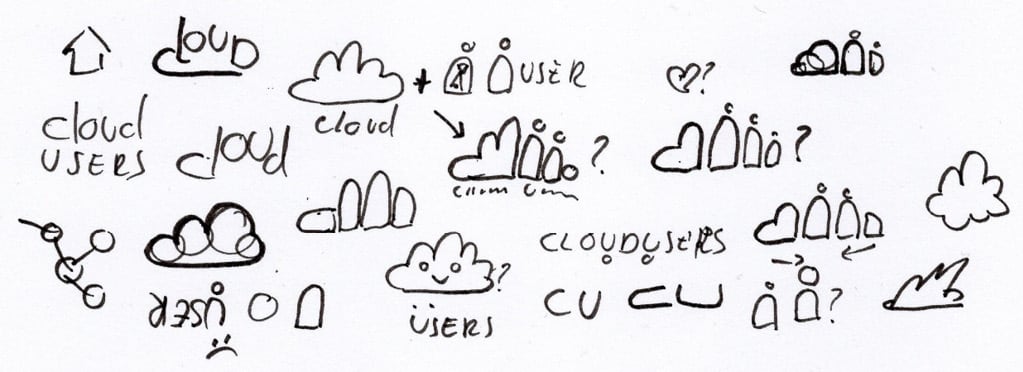 cLOUD
+ USER
cloud
?
cloud
USERS
cLOUD
?
?
CLOUDUSERS
?
USER
ÜSERS
CU
CU
?